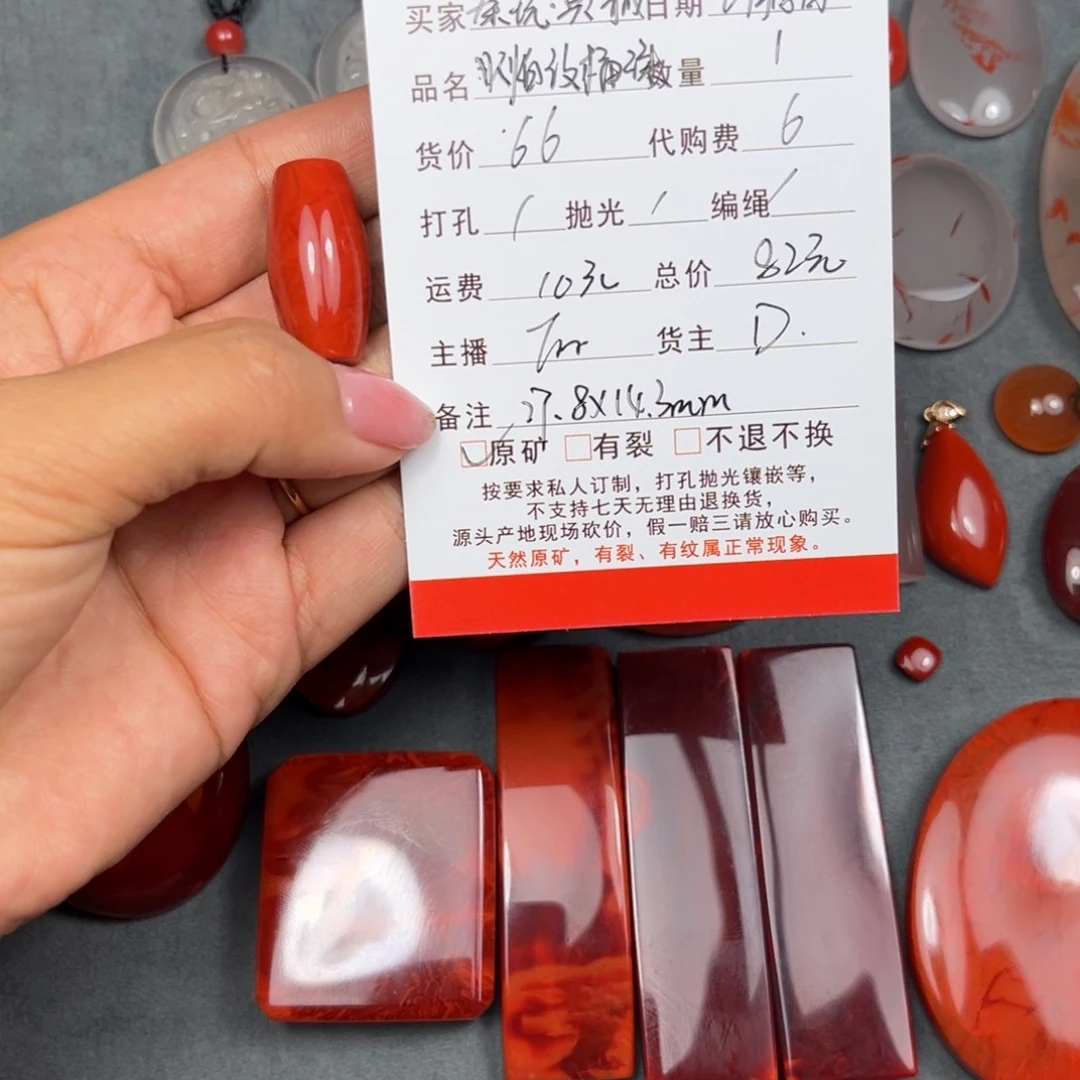 买家 日期
品名 数量 1
货价 66 代购费 6
打孔 / 抛光 / 编绳 /
运费 10元 总价 82元
主播 货主 D.
备注 27.8X14.3mm
原矿 有裂 不退不换
按要求私人订制，打孔抛光镶嵌等，
不支持七天无理由退换货，
源头产地现场砍价，假一赔三请放心购买。
天然原矿，有裂、有纹属正常现象。